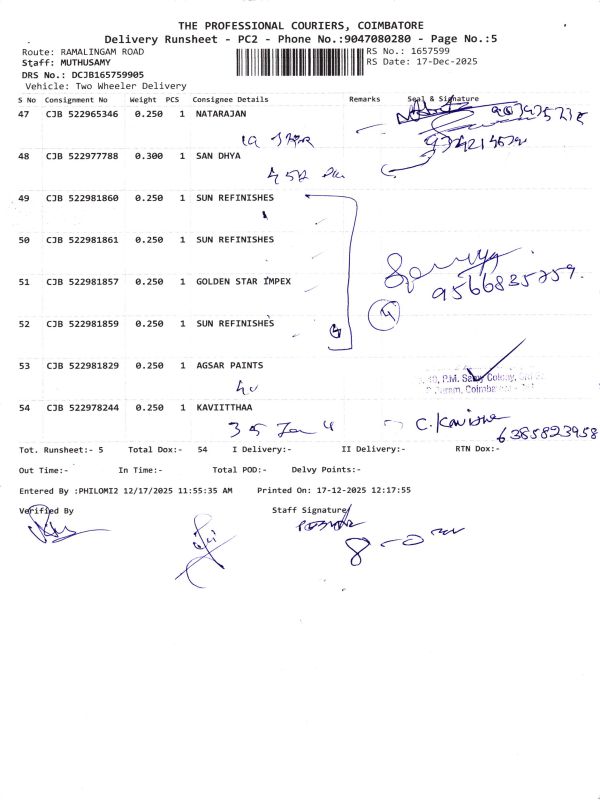 THE PROFESSIONAL COURIERS, COIMBATORE
Delivery Runsheet - PC2 - Phone No.:9047080280 - Page No.:5
Route: RAMALINGAM ROAD RS No.: 1657599
Staff: MUTHUSAMY RS Date: 17-Dec-2025
DRS No.: DCJB165759905
Vehicle: Two Wheeler Delivery
S No Consignment No Weight PCS Consignee Details Remarks Seal & Signature
47 CJB 522965346 0.250 1 NATARAJAN
48 CJB 522977788 0.300 1 SAN DHYA
49 CJB 522981860 0.250 1 SUN REFINISHES
50 CJB 522981861 0.250 1 SUN REFINISHES
51 CJB 522981857 0.250 1 GOLDEN STAR IMPEX
9566835259.
52 CJB 522981859 0.250 1 SUN REFINISHES
4
53 CJB 522981829 0.250 1 AGSAR PAINTS
P.M. Samy Colony,
54 CJB 522978244 0.250 1 KAVIITTHAA
6385823958
Tot. Runsheet:- 5 Total Dox:- 54 I Delivery:- II Delivery:- RTN Dox:-
Out Time:- In Time:- Total POD:- Delvy Points:-
Entered By :PHILOMI2 12/17/2025 11:55:35 AM Printed On: 17-12-2025 12:17:55
Verified By Staff Signature